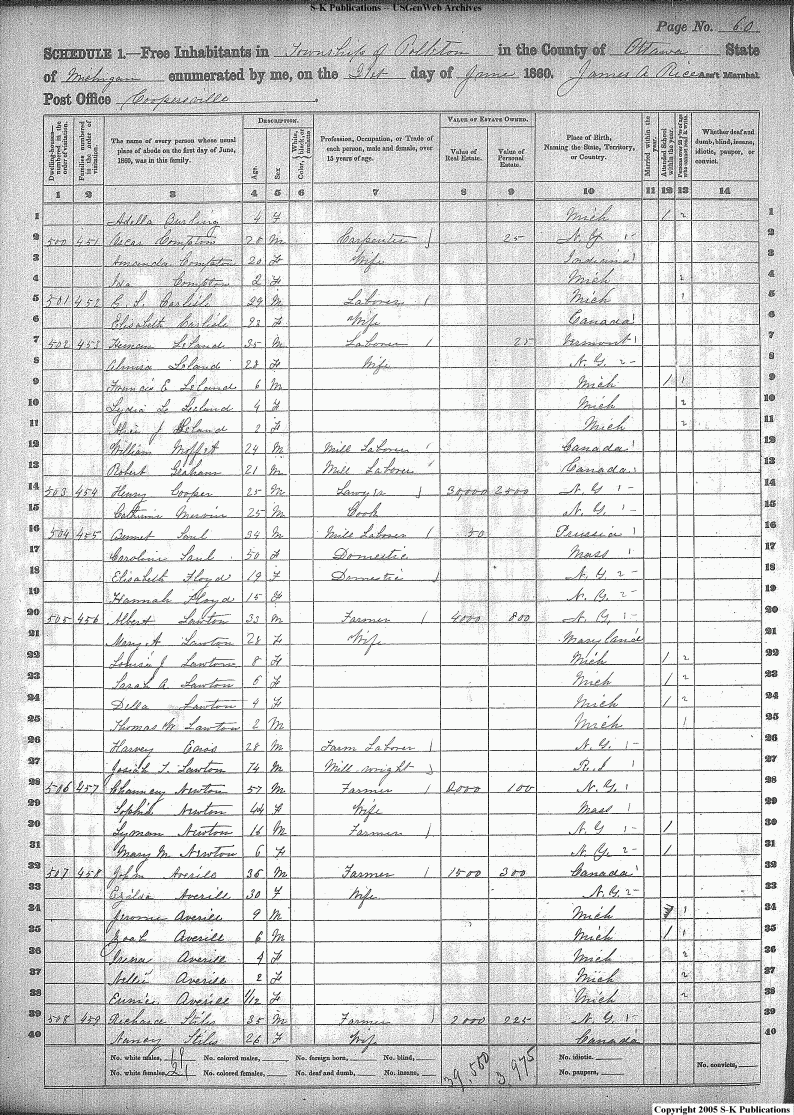 S-K Publications – USGenWeb Archives
Page No. 60
SCHEDULE 1.—Free Inhabitants in Township of Polkton in the County of Ottawa State
of Michigan enumerated by me, on the 21st day of June 1860. James A Rice Ass't Marshal
Post Office Coopersville.
Dwelling-houses—numbered in the order of visitation. Families numbered in the order of visitation. The name of every person whose usual place of abode on the first day of June, 1860, was in this family. DESCRIPTION. Age. Sex. Color, White, black, or mulatto. Profession, Occupation, or Trade of each person, male and female, over 15 years of age. VALUE OF ESTATE OWNED. Value of Real Estate. Value of Personal Estate. Place of Birth, Naming the State, Territory, or Country. Married within the year. Attended School within the year. Persons over 20 y'rs of age who cannot read & write. Whether deaf and dumb, blind, insane, idiotic, pauper, or convict.
1 2 3 4 5 6 7 8 9 10 11 12 13 14
1 Adella 4 F Mich / 2 1
2 500 451 Oscar Compton 28 M Carpenter 25 N. Y. 1- 2
3 Amanda Compton 20 F Wife Indiana 3
4 Ida Compton 2 F Mich 2 4
5 501 452 Carlisle 29 M Laborer Mich 1 5
6 Elisabeth Carlisle F Wife Canada 6
7 502 453 Leland 35 M Laborer 25 Vermont 7
8 Almira Leland 28 F Wife N. Y. 2- 8
9 Francis E Leland 6 M Mich / 1 9
10 Lydia Leland 4 F Mich 2 10
11 J Leland 2 F Mich 2 11
12 William Moffit 24 M Mill Laborer Canada 12
13 Robert Graham 21 M Mill Laborer Canada 13
14 503 454 Henry Cooper 25 M Lawyer 30,000 2500 N. Y. 1- 14
15 25 M Cook N. Y. 1- 15
16 504 455 Saul 34 M Mill Laborer 50 Prussia 1 16
17 Caroline Saul 50 F Domestic Mass 1 17
18 Elisabeth Floyd 19 F Domestic N. Y. 2- 18
19 Hannah Floyd 15 F N. Y. 2- 19
20 505 456 Albert Lawton 33 M Farmer 4000 800 N. Y. 1- 20
21 Mary A Lawton 28 F Wife Maryland 21
22 Louisa J Lawton 8 F Mich / 2 22
23 Sarah A. Lawton 5 F Mich / 2 23
24 Della Lawton 4 F Mich / 2 24
25 Thomas W Lawton 2 M Mich 1 25
26 Harvey 28 M Farm Laborer N. Y. 1- 26
27 Josiah T. Lawton 74 M Mill wright R. I 1 27
28 506 457 Chauncy Newton 57 M Farmer 2000 100 N. Y. 1 28
29 Sophia Newton 44 F Wife Mass 1 29
30 Lyman Newton 16 M Farmer N. Y 1- / 30
31 Mary M. Newton 6 F N. Y. 2- / 31
32 507 458 John Averill 36 M Farmer 1500 300 Canada 32
33 Averill 30 F Wife N. Y. 2- 33
34 Jerome Averill 9 M Mich / 1 34
35 Averill 6 M Mich / 1 35
36 Irena Averill 4 F Mich 2 36
37 Nellie Averill 2 F Mich 2 37
38 Eunice Averill 1/12 F Mich 2 38
39 508 459 Richard Stiles 35 M Farmer 2000 225 N. Y. 1- 39
40 Nancy Stiles 26 F Wife Canada 40
No. white males, 19 No. colored males, No. foreign born, No. blind, 39,500 3,975 No. idiotic. No. convicts,
No. white females, 21 No. colored females, No. deaf and dumb, No. insane, No. paupers,
Copyright 2005 S-K Publications